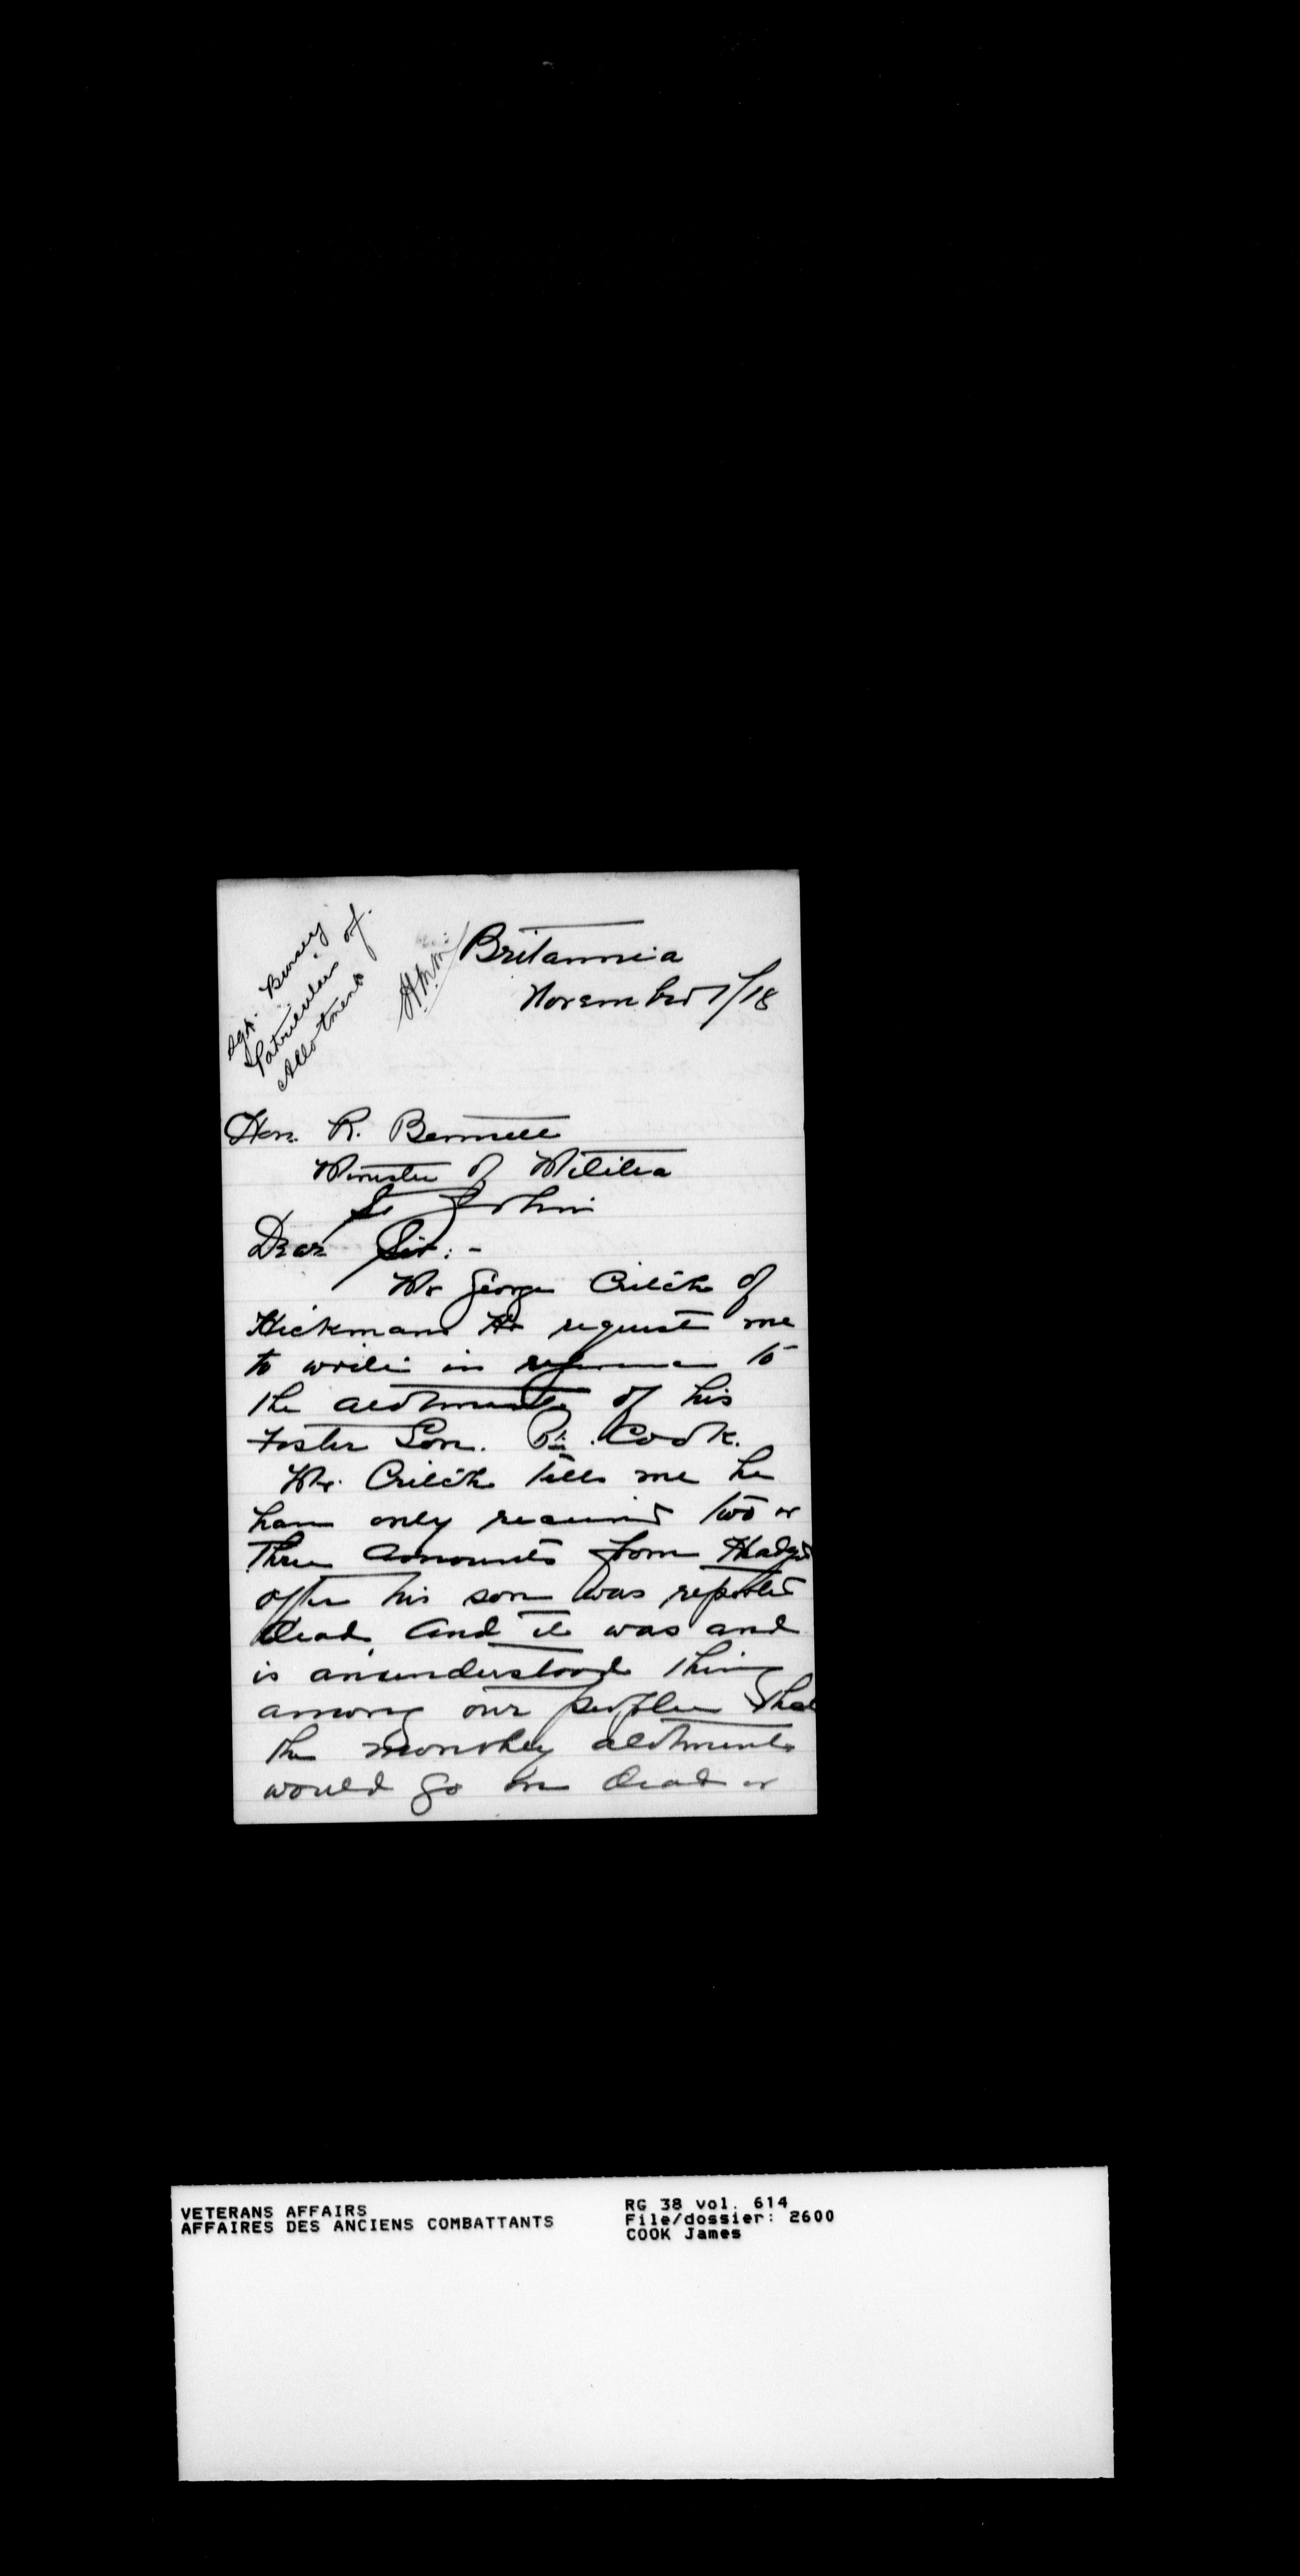 Sgt. Bursey
Particulars of
Allotment
Britannia
November 7/18
Hon. R. Bennett
Minister of Militia
St Johns
Dear Sir:-
Mr George Critch of
Hickmans Hr request me
to write in reference to
the allotments of his
Foster Son. Pte. Cook.
Mr. Critch tells me he
have only received two or
three amounts from
after his son was reported
dead. and it was and
is an understood thing
among our people that
the monthly allotments
would go on dead or
VETERANS AFFAIRS
AFFAIRES DES ANCIENS COMBATTANTS
RG 38 vol. 614
File/dossier: 2600
COOK James